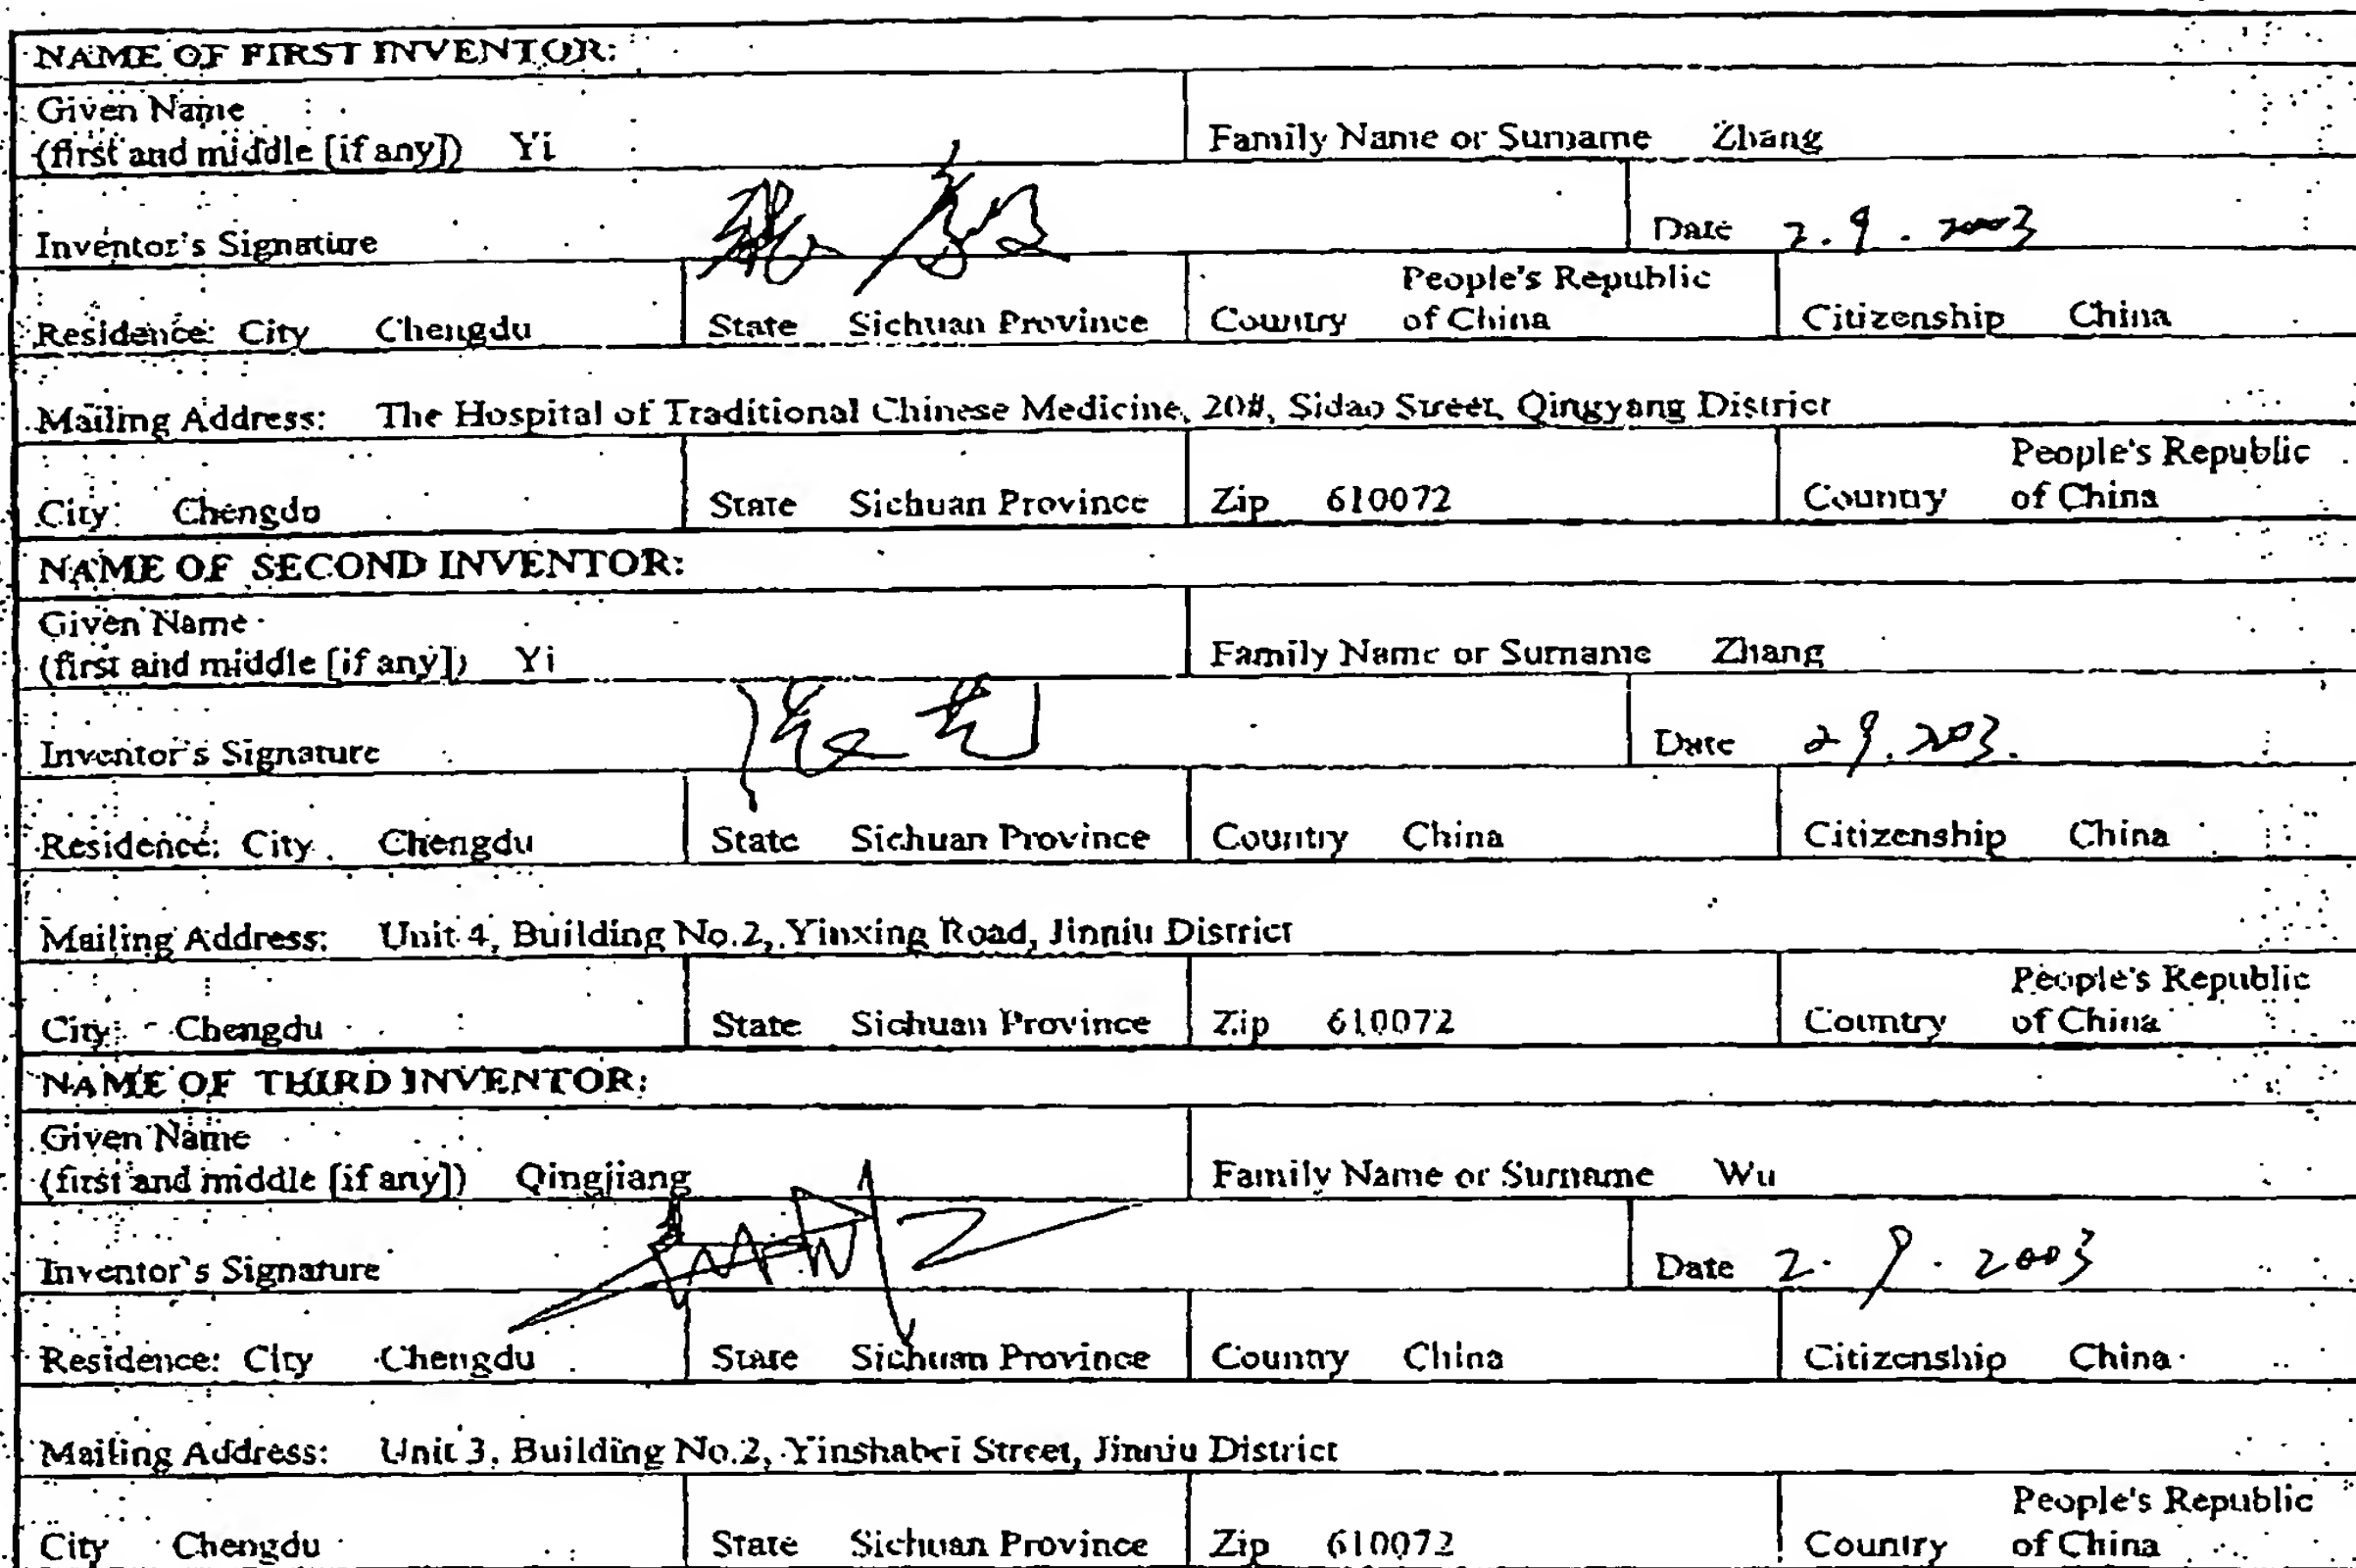 NAME OF FIRST INVENTOR:
Given Name
(first and middle [if any]) Yi Family Name or Surname Zhang
Inventor's Signature Date 2.9.2003
People's Republic
Residence: City Chengdu State Sichuan Province Country of China Citizenship China
Mailing Address: The Hospital of Traditional Chinese Medicine, 20#, Sidao Street, Qingyang District
People's Republic
City Chengdu State Sichuan Province Zip 610072 Country of China
NAME OF SECOND INVENTOR:
Given Name
(first and middle [if any]) Yi Family Name or Surname Zhang
Inventor's Signature Date 2 9.203.
Residence: City Chengdu State Sichuan Province Country China Citizenship China
Mailing Address: Unit 4, Building No.2, Yinxing Road, Jinniu District
People's Republic
City Chengdu State Sichuan Province Zip 610072 Country of China
NAME OF THIRD INVENTOR:
Given Name
(first and middle [if any]) Qingjiang Family Name or Surname Wu
Inventor's Signature Date 2.9.2003
Residence: City Chengdu State Sichuan Province Country China Citizenship China
Mailing Address: Unit 3, Building No.2, Yinshabei Street, Jinniu District
People's Republic
City Chengdu State Sichuan Province Zip 610072 Country of China